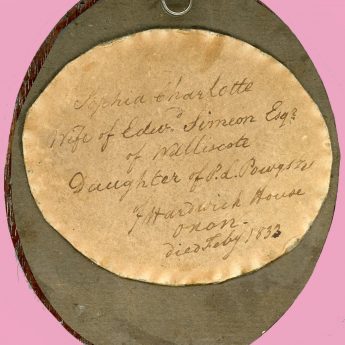 Sophia Charlotte
Wife of Edwd Simeon Esqr
of Walliscote
Daughter of P. L. Powys Esqr
of Hardwick House
Oxon.
died Feby 1833